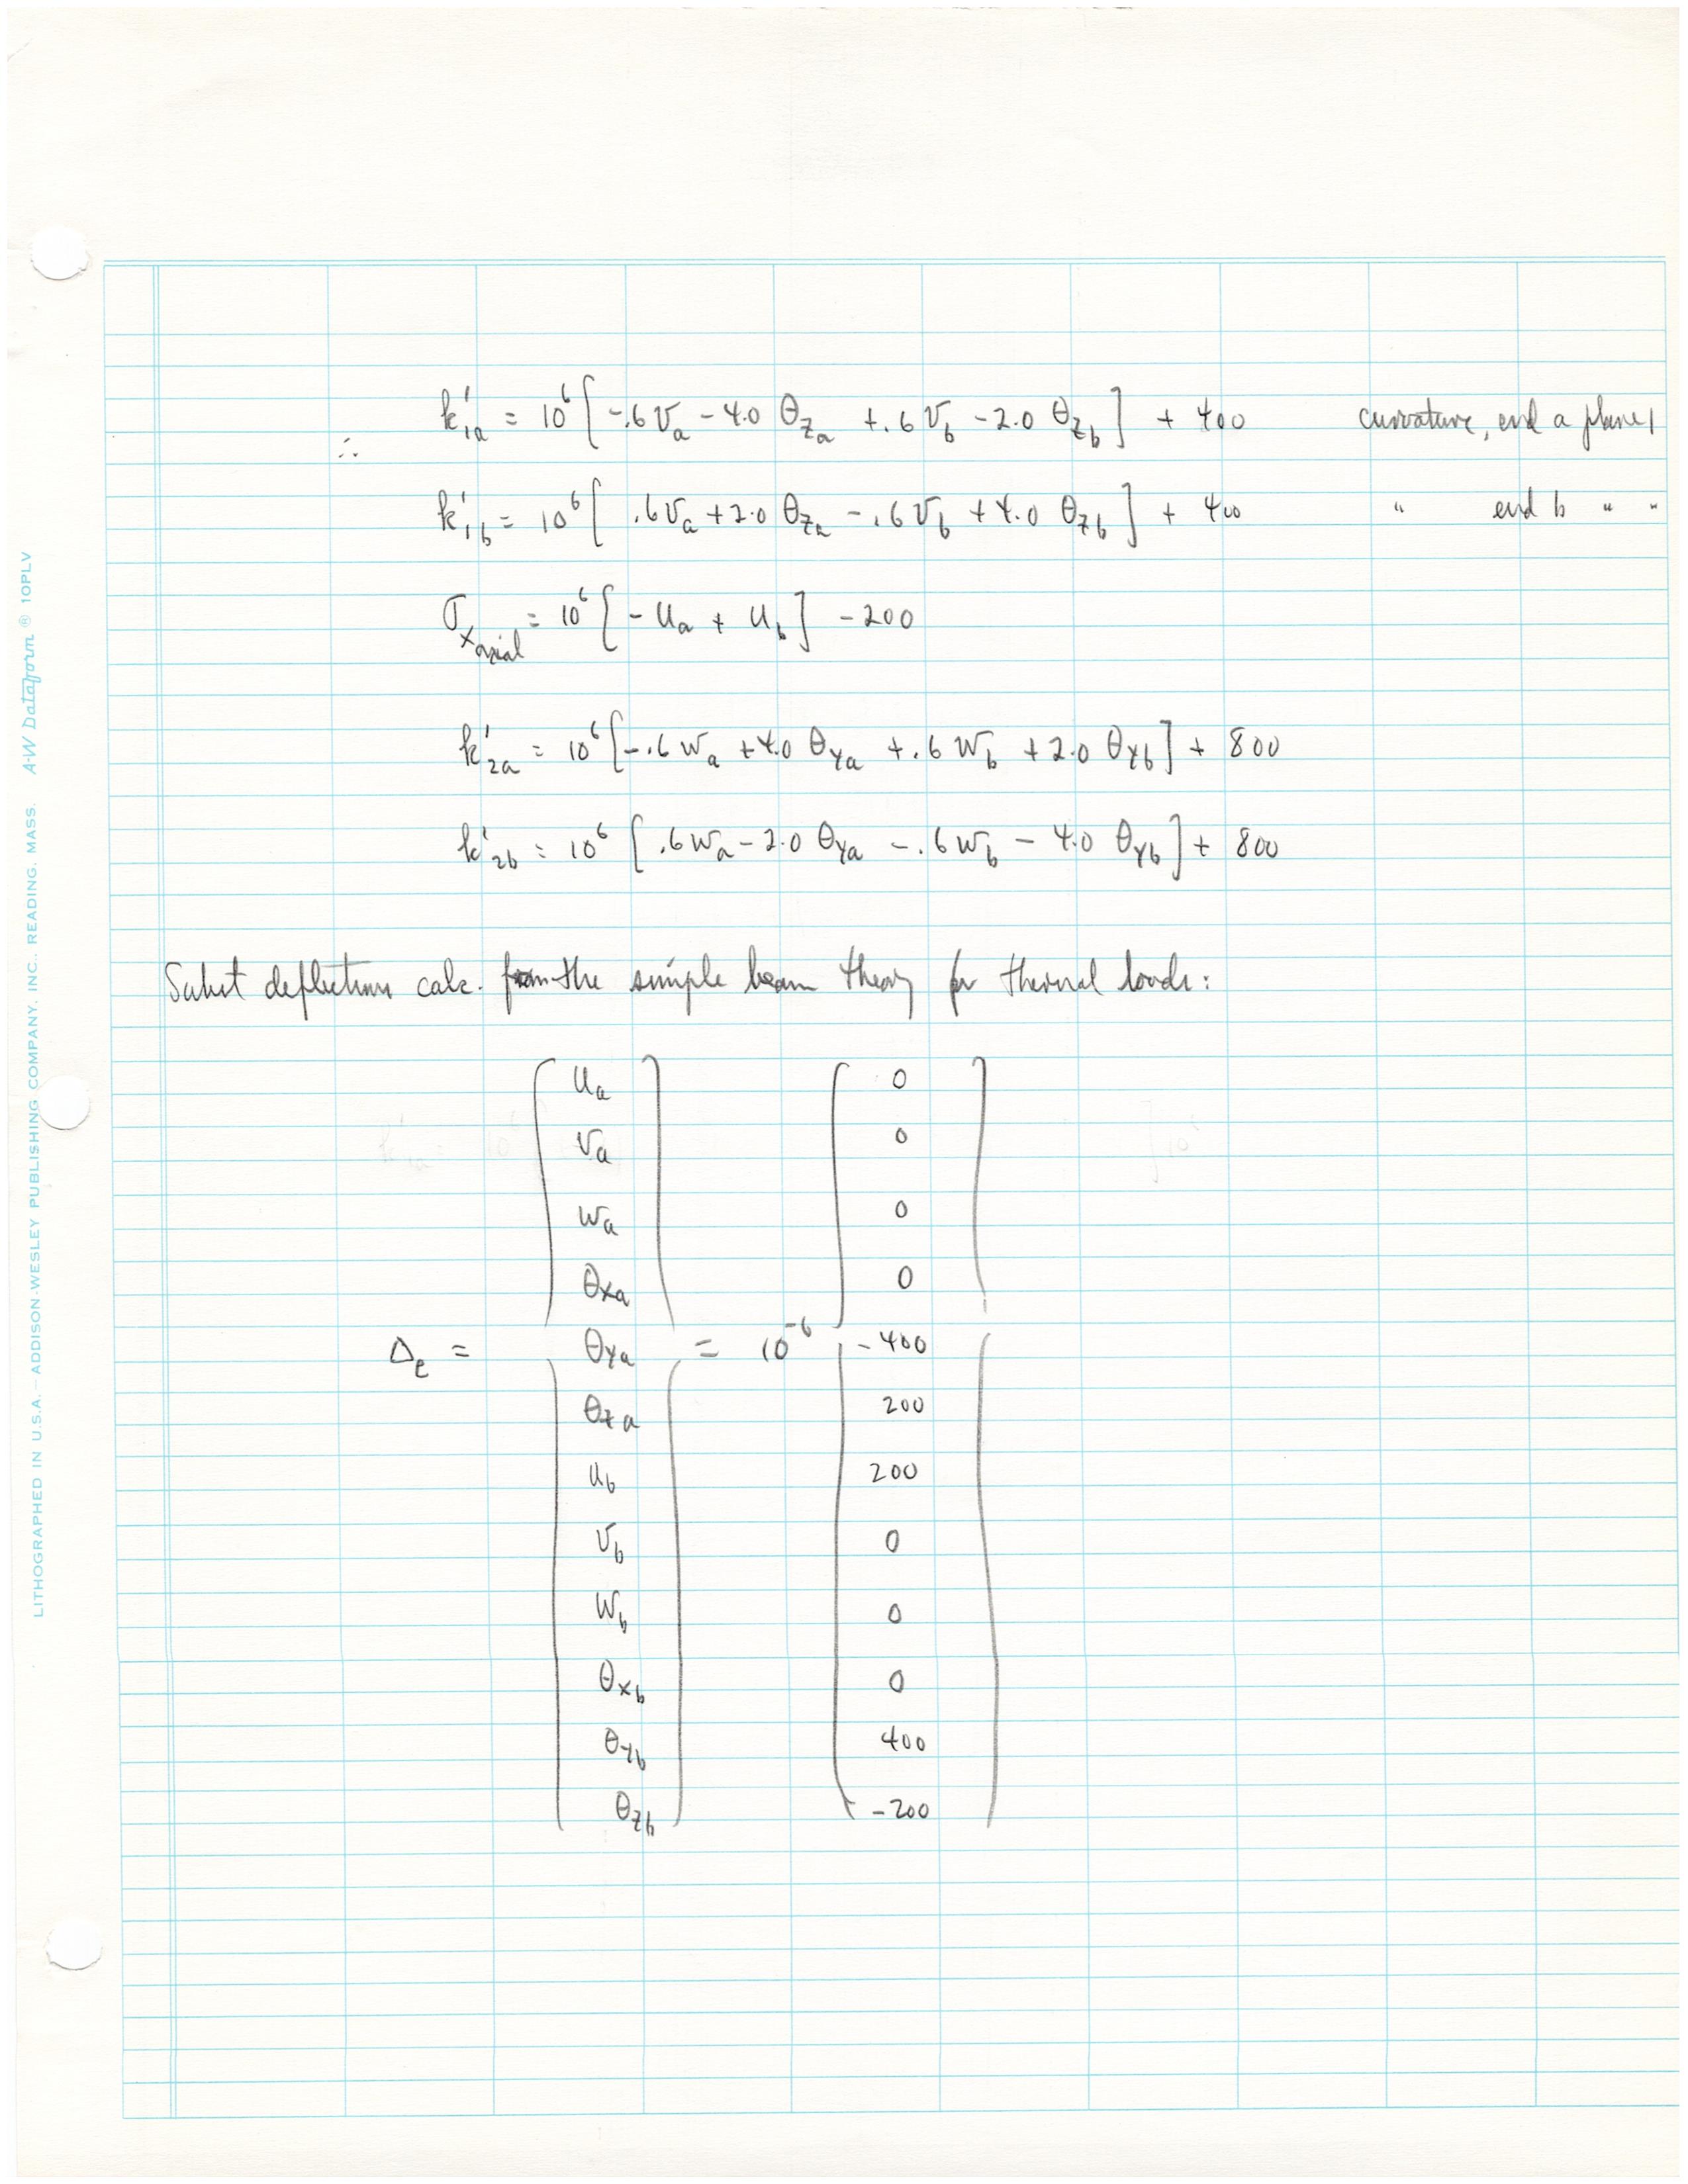 ∴ k'₁ₐ = 10⁶ [ -.6 vₐ - 4.0 θ_zₐ + .6 v_b - 2.0 θ_z_b ] + 400 curvature, end a plane 1
k'₁b = 10⁶ [ .6 vₐ + 2.0 θ_zₐ - .6 v_b + 4.0 θ_z_b ] + 400 " end b " "
σ_x axial = 10⁶ [ - uₐ + u_b ] - 200
k'₂ₐ = 10⁶ [ -.6 wₐ + 4.0 θ_yₐ + .6 w_b + 2.0 θ_yb ] + 800
k'₂b = 10⁶ [ .6 wₐ - 2.0 θ_yₐ - .6 w_b - 4.0 θ_yb ] + 800
Subst deflections calc. from the simple beam theory for thermal loads:
uₐ 0
vₐ 0
wₐ 0
θxₐ 0
Δₑ = θyₐ = 10⁻⁶ - 400
θzₐ 200
u_b 200
v_b 0
w_b 0
θx_b 0
θy_b 400
θz_b - 200
LITHOGRAPHED IN U.S.A. – ADDISON-WESLEY PUBLISHING COMPANY, INC., READING, MASS. A-W Dataform ® 10PLV